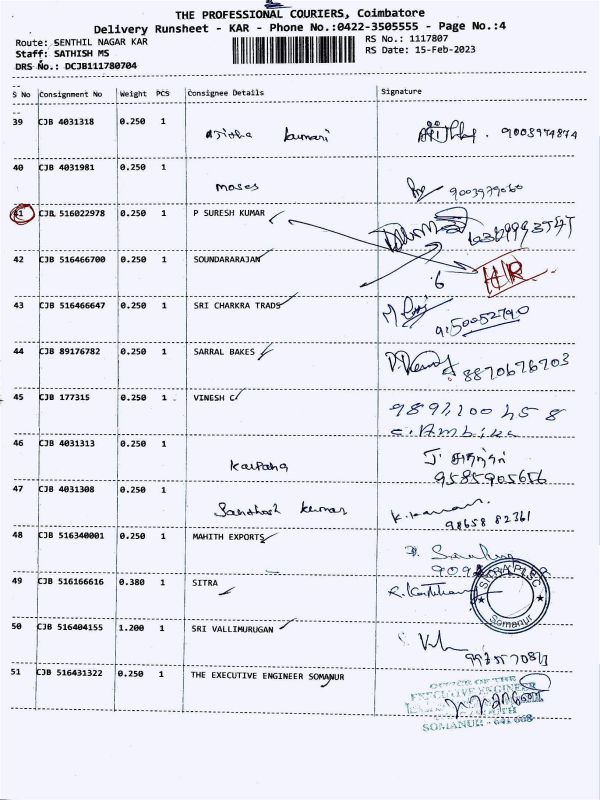 THE PROFESSIONAL COURIERS, Coimbatore
Delivery Runsheet - KAR - Phone No.:0422-3505555 - Page No.:4
Route: SENTHIL NAGAR KAR
RS No.: 1117807
Staff: SATHISH MS
RS Date: 15-Feb-2023
DRS No.: DCJB111780704
S No Consignment No Weight PCS Consignee Details Signature
39 CJB 4031318 0.250 1 kumari 9003974874
40 CJB 4031981 0.250 1 moses 9003979060
41 CJB 516022978 0.250 1 P SURESH KUMAR
42 CJB 516466700 0.250 1 SOUNDARARAJAN
43 CJB 516466647 0.250 1 SRI CHARKRA TRADS
9150052790
44 CJB 89176782 0.250 1 SARRAL BAKES
8870676703
45 CJB 177315 0.250 1 VINESH C
C. Ambika
46 CJB 4031313 0.250 1 Kalpana
9585905656
47 CJB 4031308 0.250 1 Santhosh kumar
98658 82361
48 CJB 516340001 0.250 1 MAHITH EXPORTS
49 CJB 516166616 0.380 1 SITRA
Somanur
50 CJB 516404155 1.200 1 SRI VALLIMURUGAN
51 CJB 516431322 0.250 1 THE EXECUTIVE ENGINEER SOMANUR
OFFICE OF THE
EXECUTIVE ENGINEER
SOMANUR - 641 668